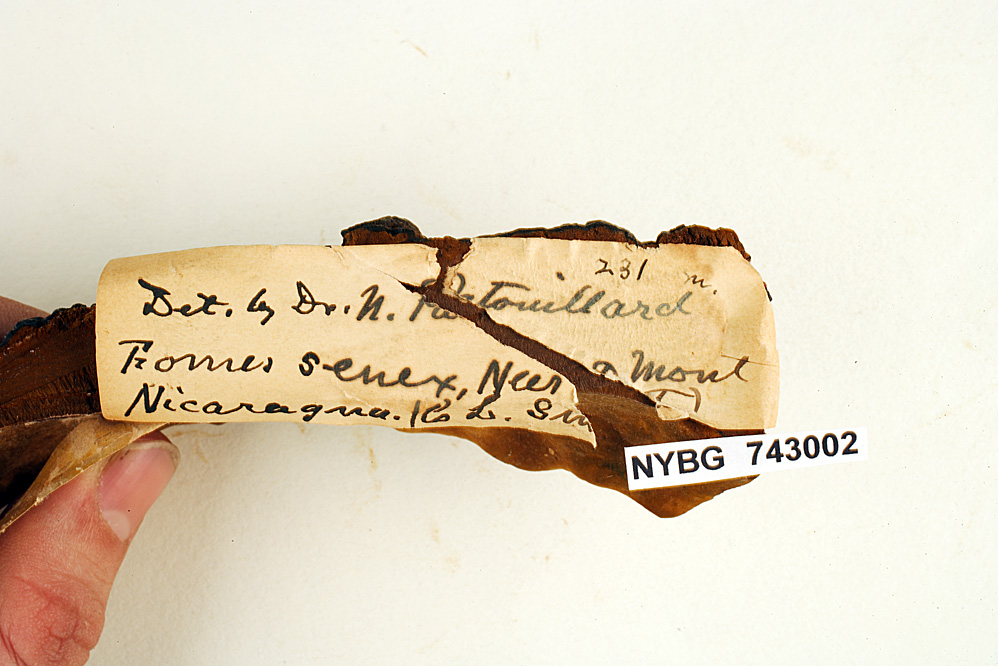 231 m.
Det. by Dr. N. Patouillard
Fomes senex, Nees & Mont
Nicaragua. C. L. Sm
NYBG 743002